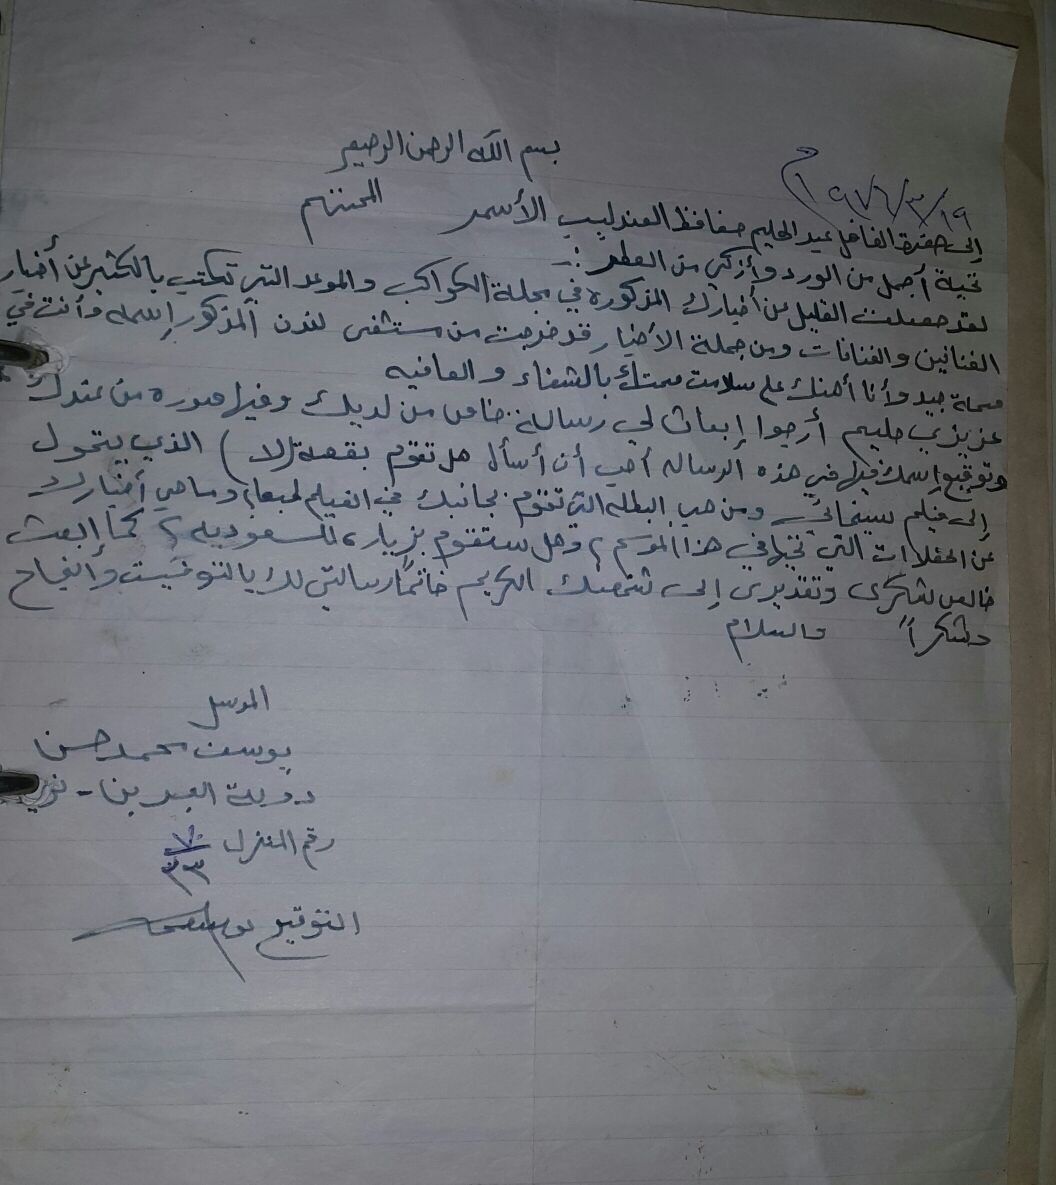 بسم الله الرحمن الرحيم
١٩٧٦/٣/١٩م
إلى حضرة الفاضل عبد الحليم حفافظ العندليب الأسمر المحترم
تحية أجمل من الورد وأزكى من العطر :ـ
لقد حصلت القليل من أخبارك المذكوره في مجلة الكواكب والموعد التي تكتب بالكثير عن أخبار
الفنانين والفنانات ومن جملة الأخبار قد خرجت من مستشفى لندن المذكور إسمه وأنت في
صحة جيد وأنا أهنك على سلامت صحتك بالشفاء والعافيه
عزيزي حليم أرجوا إبعاث لي رسالة خاص من لديك وفيها صوره من عندك
وتوقيع إسمك فيها في هذه الرساله أحب أن أسأل هل تقوم بقصة (لا) الذي يتحول
إلى فيلم سينمائي ومن هي البطله التي تقوم بجانبك في الفيلم وما هي أخبارك
عن الحفلات التي تحيها في هذا الموسم؟ وهل ستقوم بزياره للسعوديه؟ كما إبعث
خالص شكرى وتقديرى إلى شخصك الكريم خاتماً رسالتي لك بالتوفيت والنجاح
وشكراً والسلام
المرسل
يوسف محمد حسن
رقم المنزل ٧/٢٣
التوقيع